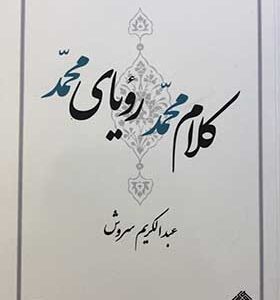 کلام محمّد رؤیای محمّد
عبدالکریم سروش